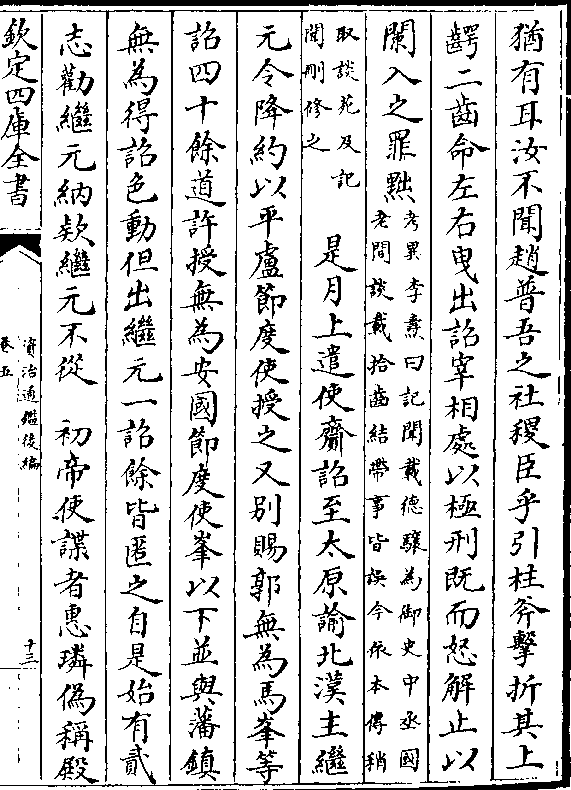 猶有耳汝不聞趙普吾之社稷臣乎引柱斧擊折其上
齶二齒命左右曳出詔宰相處以極刑既而怒解止以
闌入之罪黜
考異李燾曰記聞載德驤為御史中丞國
老閒談載拾齒結帶事皆誤今依本傳稍
取談苑及記
聞刪修之
是月上遣使齎詔至太原諭北漢主繼
元令降約以平盧節度使授之又別賜郭無為馬峯等
詔四十餘道許授無為安國節度使峯以下並與藩鎮
無為得詔色動但出繼元一詔餘皆匿之自是始有貳
志勸繼元納欵繼元不從　初帝使諜者惠璘偽稱殿
欽定四庫全書
資治通鑑後編
卷五
十三